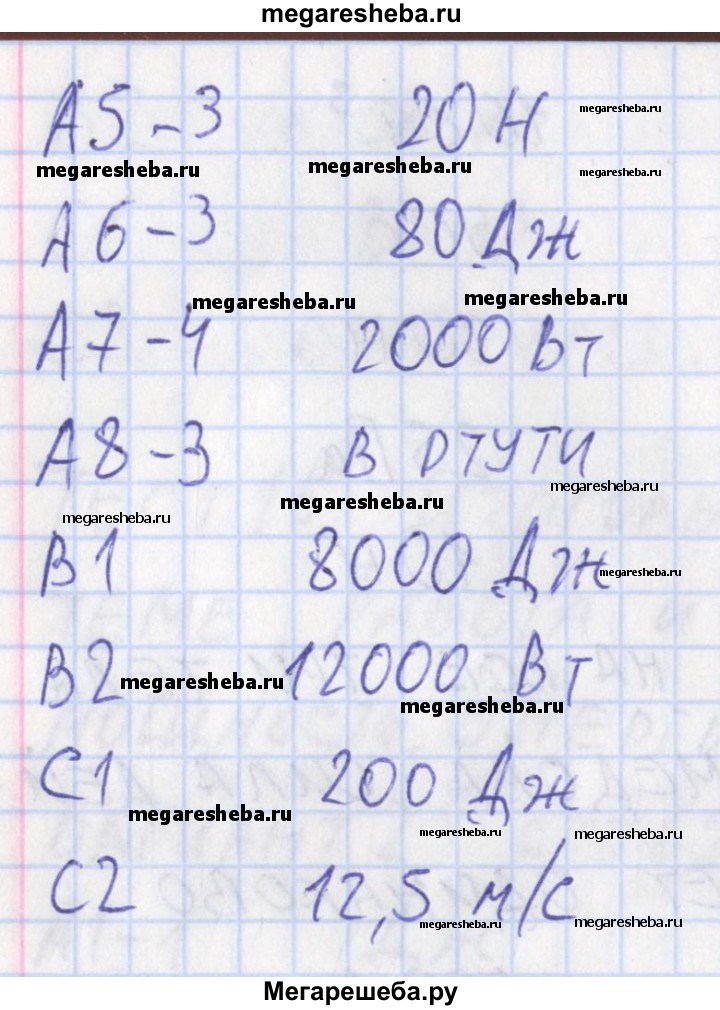 megaresheba.ru
А5-3 20 Н megaresheba.ru
megaresheba.ru megaresheba.ru megaresheba.ru
А6-3 80 Дж
megaresheba.ru megaresheba.ru
А7-4 2000 Вт
А8-3 в ртути
megaresheba.ru
megaresheba.ru megaresheba.ru
В1 8000 Дж megaresheba.ru
В2 megaresheba.ru 12000 Вт
megaresheba.ru
С1 200 Дж
megaresheba.ru megaresheba.ru megaresheba.ru
С2 12,5 м/с
megaresheba.ru megaresheba.ru
Мегарешеба.ру